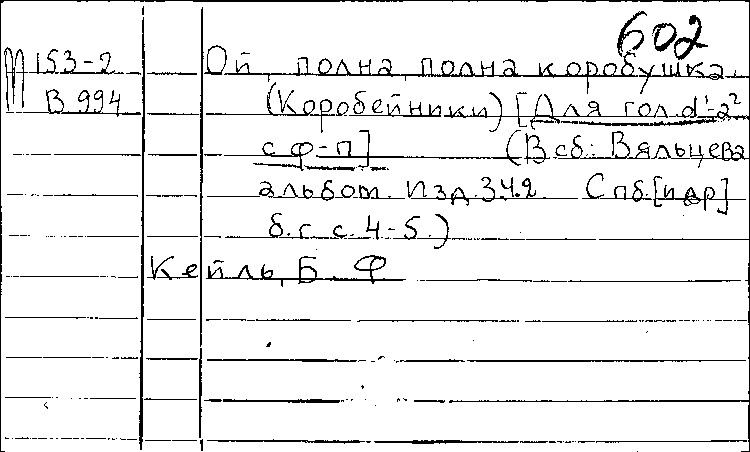 602
М 153-2 Ой, полна, полна коробушка.
В 994 (Коробейники) [Для гол. d¹-a²
с ф-п] (В сб: Вяльцева
альбом. Изд. Ч.2. Спб. [и др]
б.г. с. 4-5.)
Кейль, Б. Ф